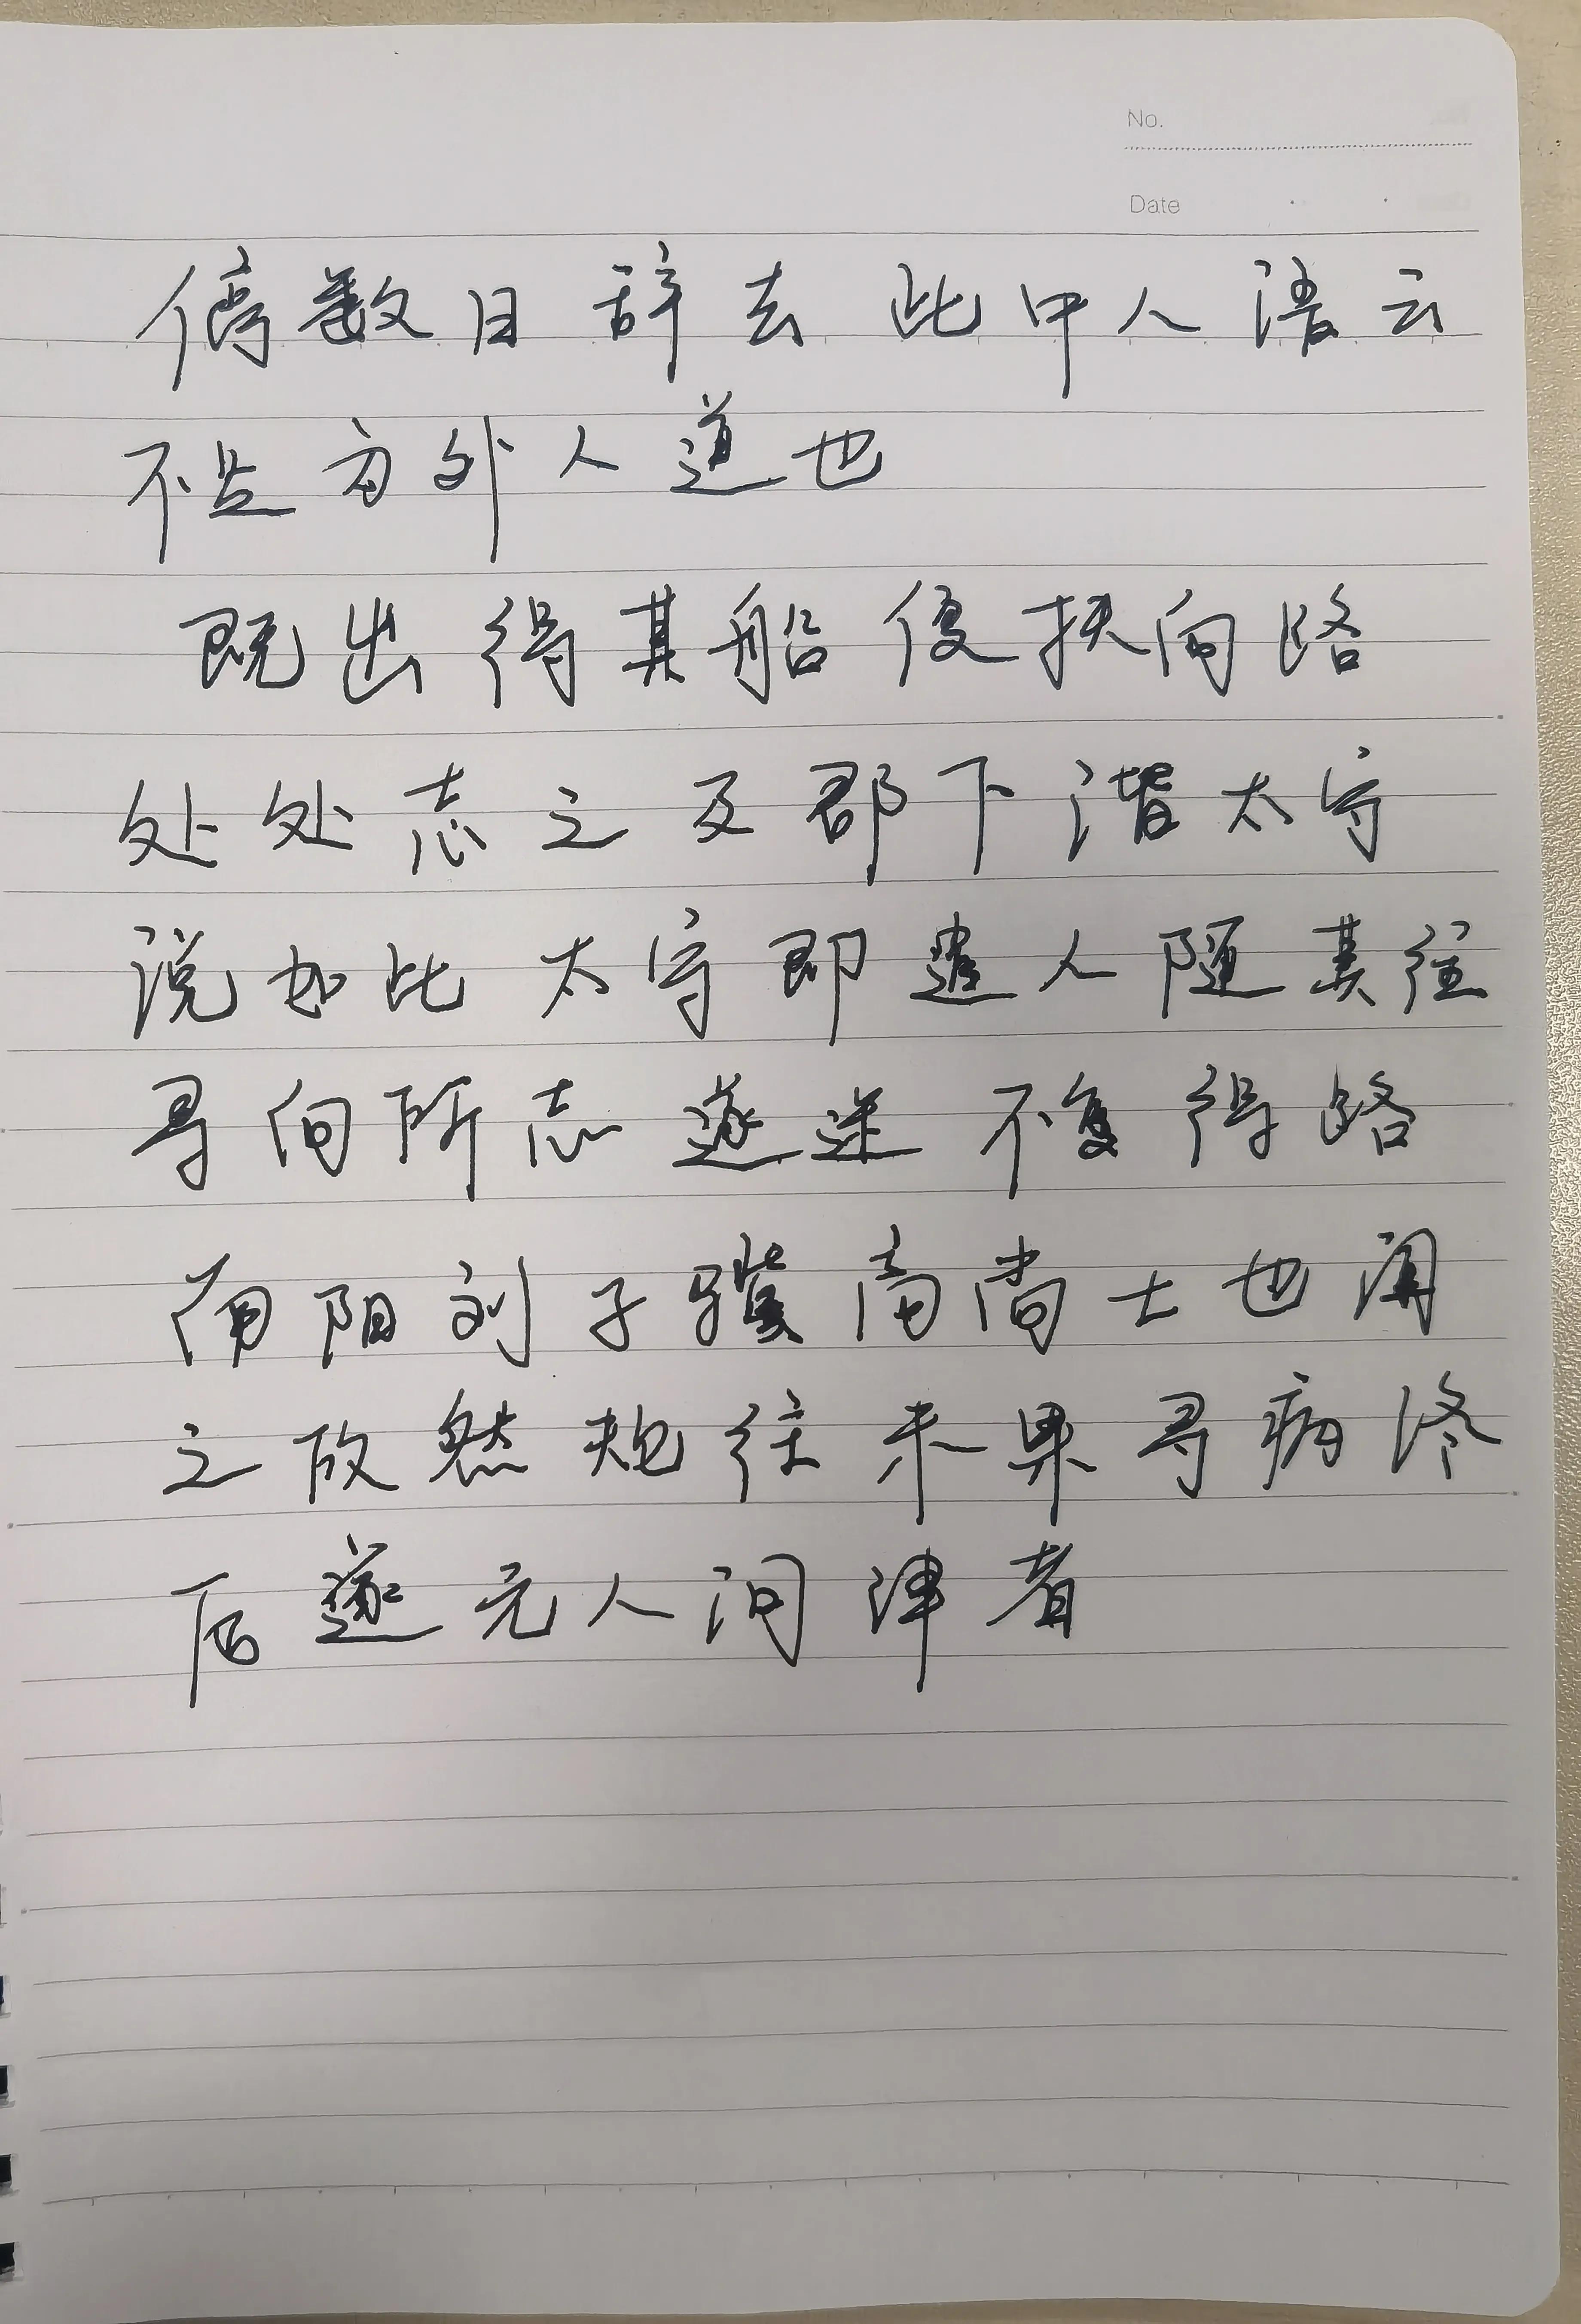 No.
Date
停数日辞去此中人语云
不足为外人道也
既出得其船便扶向路
处处志之及郡下诣太守
说如此太守即遣人随其往
寻向所志遂迷不复得路
南阳刘子骥高尚士也闻
之欣然规往未果寻病终
后遂无人问津者